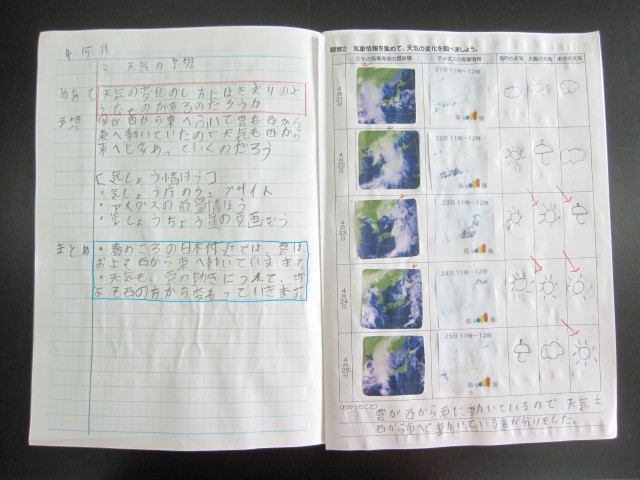 4 15 月
2 天気の予想
めあて 天気の変化のし方にはきまりのよ
うなものがあるのだろうか
予想 雲が西から東へうごいて雲も西から
東へ動いていたので天気も西から
東へと変わっていくのだろう
気しょう情ほう
・気しょう庁のウェブサイト
・アメダスの雨量情ほう
・気しょうちょう星の雲画ぞう
まとめ ・春のころの日本付近では、雲は
およそ西から東へ動いていきます
・天気も、雲の動きにつれて、お
よそ西の方から変わっていきます
観察2 気象情報を集めて、天気の変化を調べましょう。
正午の気象衛星の雲画像 アメダスの雨量情報 福岡の天気 大阪の天気 東京の天気
4月21日 21日11時-12時
4月22日 22日11時-12時
4月23日 23日11時-12時
弱 強
4月24日 24日11時-12時
弱 強
4月25日 25日11時-12時
弱 強
(わかったこと)
雲が西から東に動いているので、天気も
西から東へと動いている事が分りました。